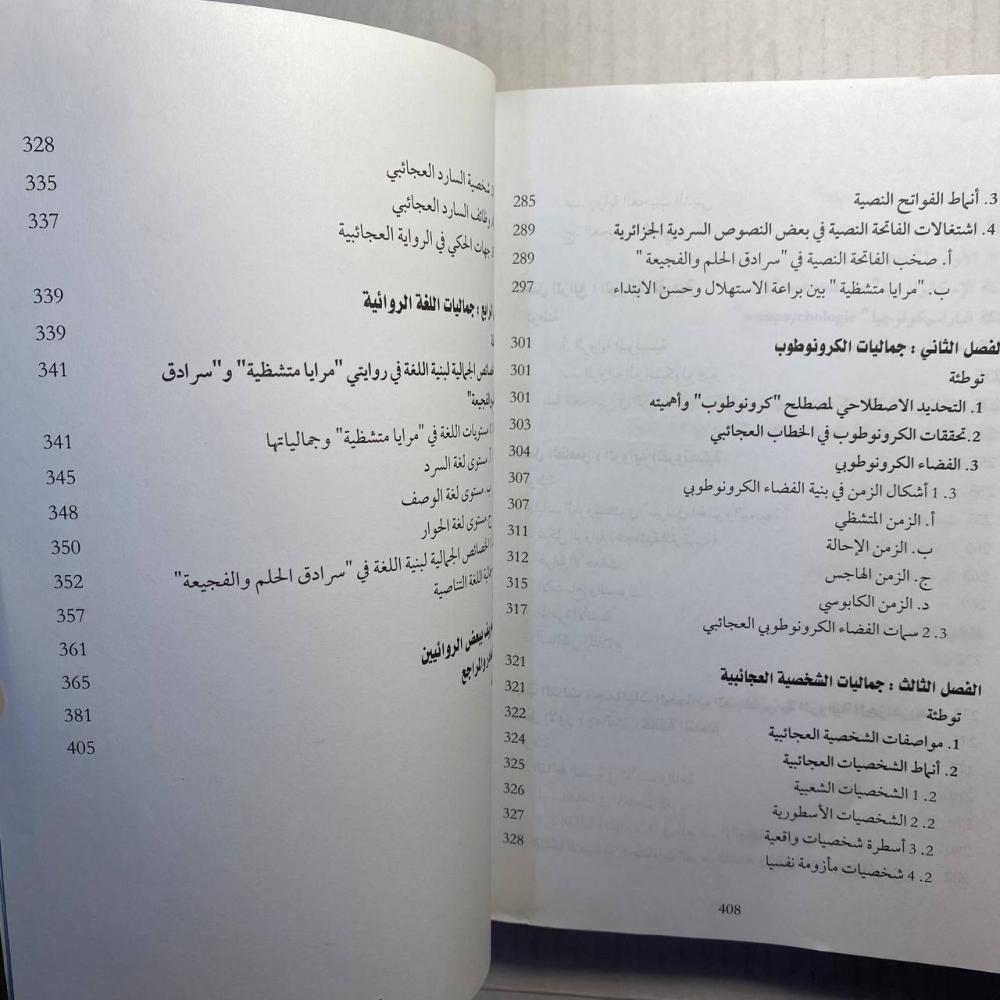 3. أنماط الفواتح النصية 285
4. اشتغالات الفاتحة النصية في بعض النصوص السردية الجزائرية 289
أ. صخب الفاتحة النصية في "سرادق الحلم والفجيعة " 289
ب. "مرايا متشظية " بين براعة الاستهلال وحسن الابتداء 297
الفصل الثاني : جماليات الكرونوطوب 301
توطئة 301
1. التحديد الاصطلاحي لمصطلح "كرونوطوب" وأهميته 301
2. تحققات الكرونوطوب في الخطاب العجائبي 303
3. الفضاء الكرونوطوبي 304
3. 1 أشكال الزمن في بنية الفضاء الكرونوطوبي 307
أ. الزمن المتشظي 307
ب. الزمن الإحالة 311
ج. الزمن الهاجس 312
د. الزمن الكابوسي 315
3. 2 سمات الفضاء الكرونوطوبي العجائبي 317
الفصل الثالث : جماليات الشخصية العجائبية 321
توطئة 321
1. مواصفات الشخصية العجائبية 322
2. أنماط الشخصيات العجائبية 324
2. 1 الشخصيات الشعبية 325
2. 2 الشخصيات الأسطورية 326
2. 3 أسطرة شخصيات واقعية 327
2. 4 شخصيات مأزومة نفسيا 328
408
شخصية السارد العجائبي 328
وظائف السارد العجائبي 335
جهات الحكي في الرواية العجائبية 337
: جماليات اللغة الروائية 339
339
الجمالية لبنية اللغة في روايتي "مرايا متشظية" و"سرادق 341
والفجيعة"
مستويات اللغة في "مرايا متشظية" وجمالياتها 341
مستوى لغة السرد 345
ب. مستوى لغة الوصف 348
ج مستوى لغة الحوار 350
الخصائص الجمالية لبنية اللغة في "سرادق الحلم والفجيعة" 352
اللغة التناصية 357
361
ببعض الروائيين 365
والمراجع 381
405